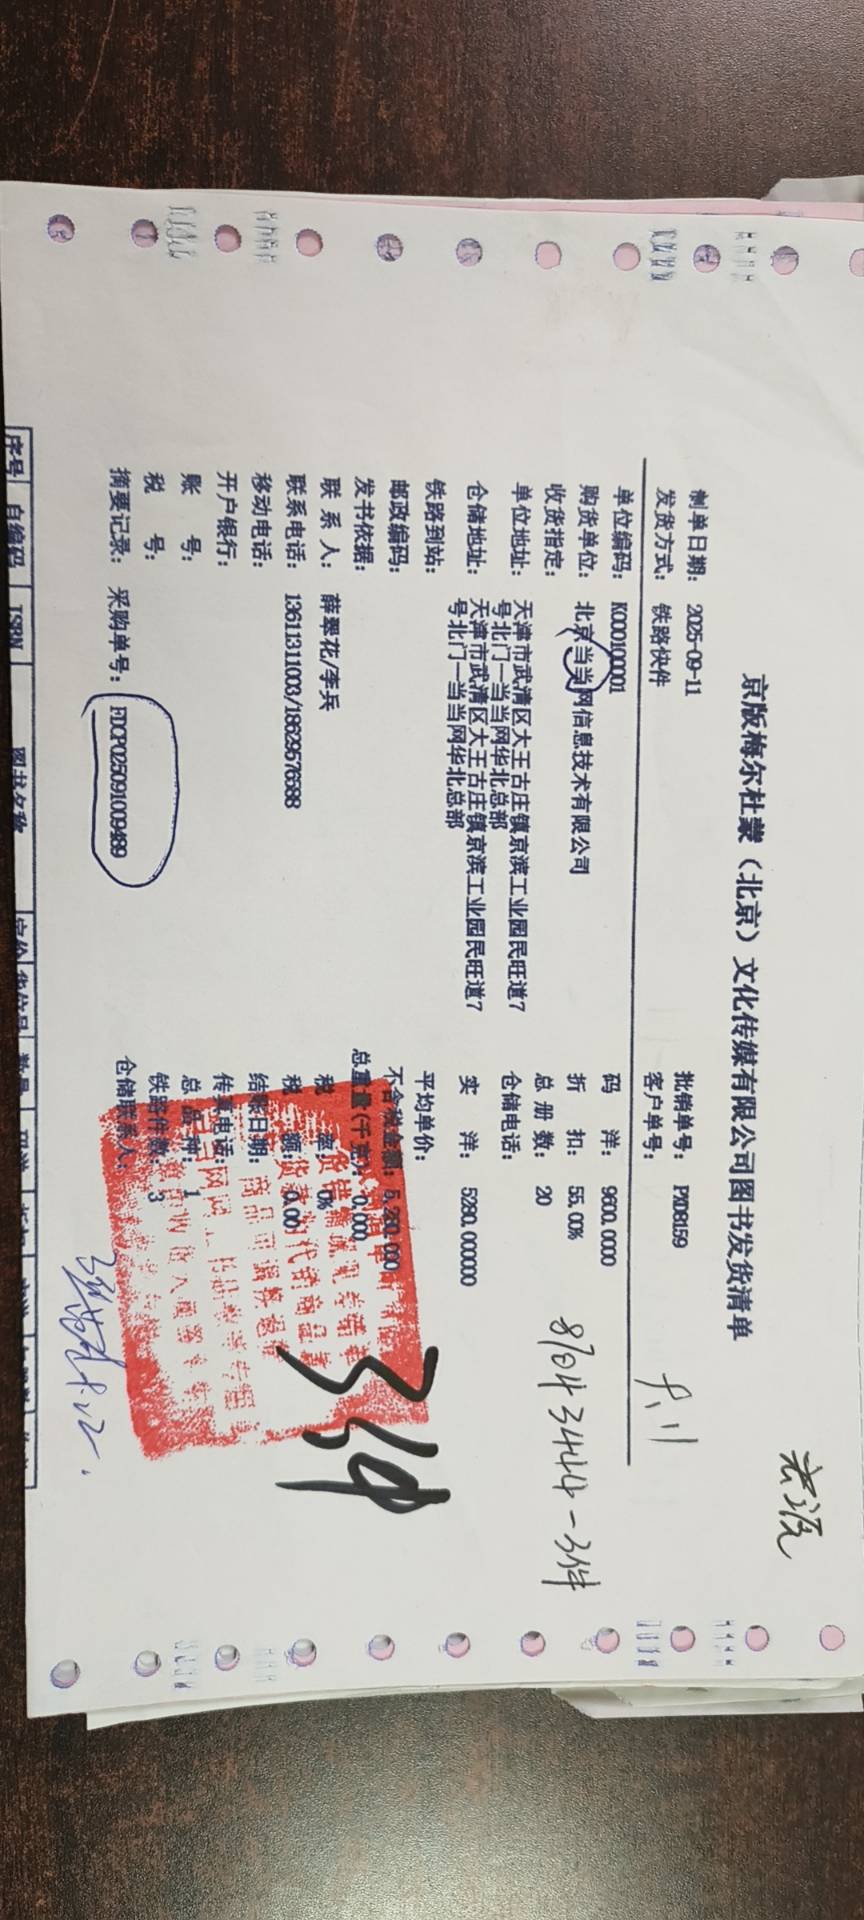 京版梅尔杜蒙（北京）文化传媒有限公司图书发货清单
制单日期： 2025-09-11
批销单号： PX08159
发货方式： 铁路快件
客户单号：
单位编码： K000100001
码 洋： 9600.0000
购货单位： 北京当当网信息技术有限公司
折 扣： 55.00%
收货指定：
总 册 数： 20
单位地址： 天津市武清区大王古庄镇京滨工业园民旺道7
号北门—当当网华北总部
仓储电话：
仓储地址： 天津市武清区大王古庄镇京滨工业园民旺道7
号北门—当当网华北总部
实 洋： 5280.000000
铁路到站：
平均单价：
邮政编码：
不含税金额： 5,280.000
发书依据：
总重量(千克)： 0.000
联 系 人： 薛翠花/李兵
税 率： 0%
联系电话： 13611311003/18629576588
税 额： 0.00
移动电话：
结帐日期：
开户银行：
传真电话：
账 号：
总 品 种： 1
税 号：
铁路件数： 3
摘要记录： 采购单号： FDCP025091009489
仓储联系人：
87043444-3件
序号 自编码 ISBN 图书名称 定价